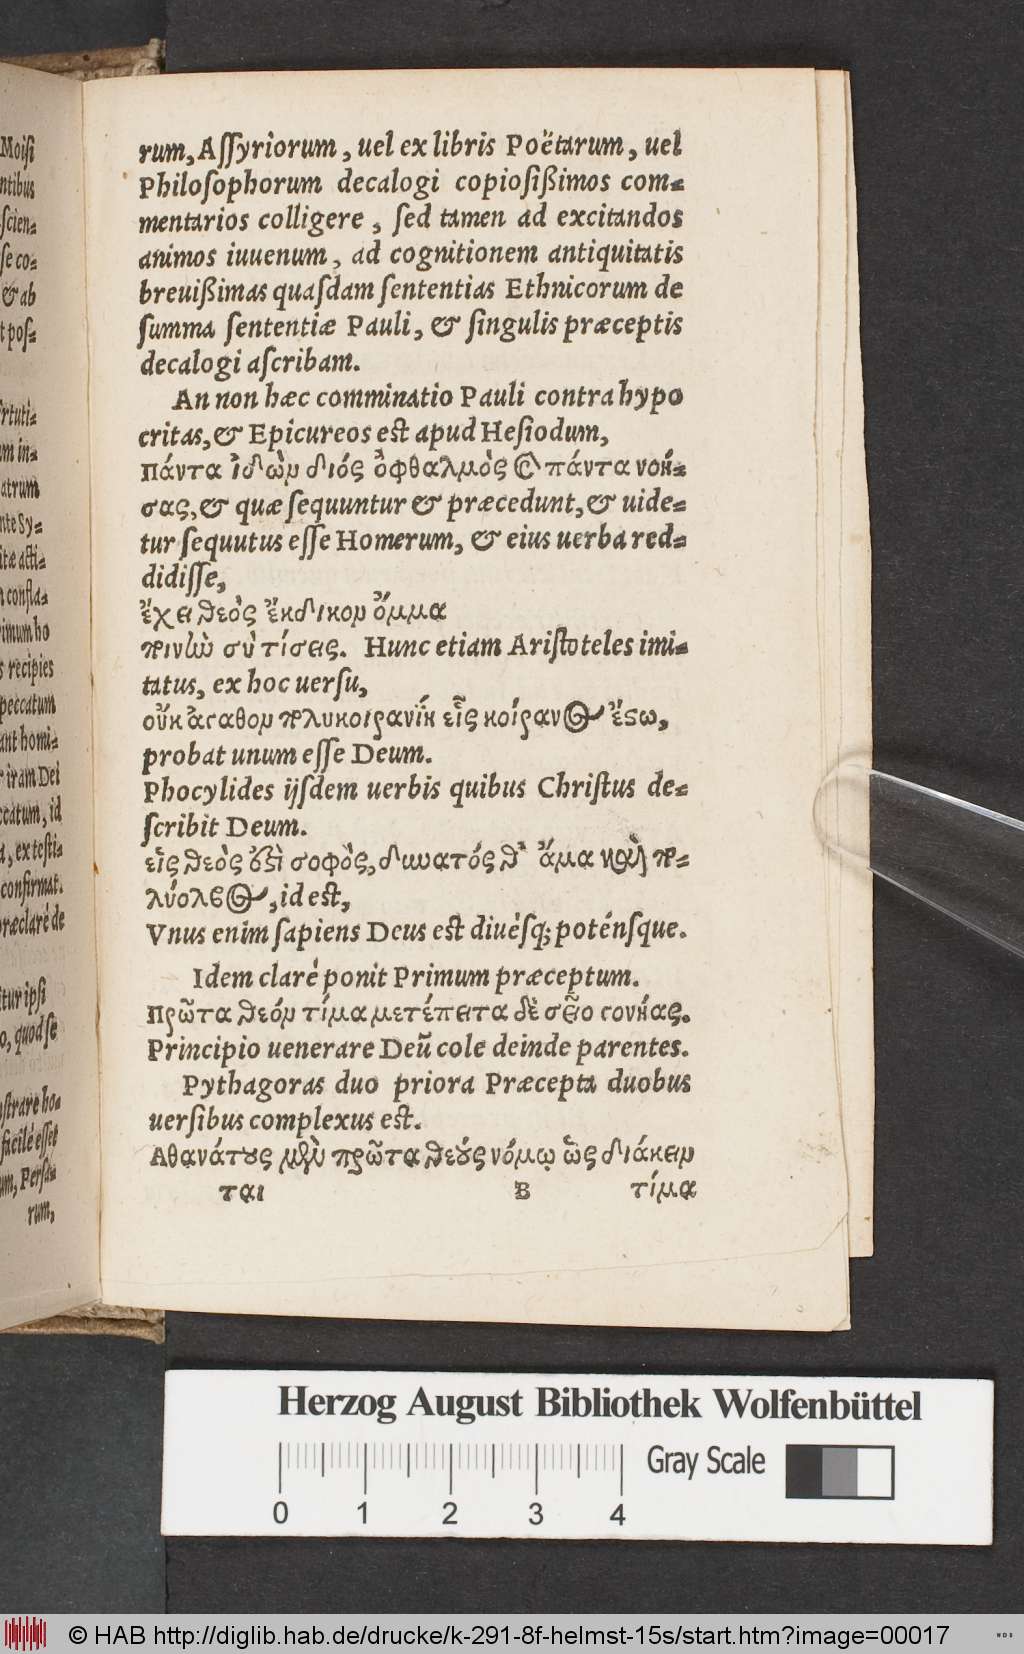 Moiſi
ntibus
ſcien⸗
ſe co⸗
& ab
t poſ⸗
rtuti⸗
m in⸗
atrum
nte Sy⸗
itæ acti⸗
n confla⸗
rimum ho
s recipies
peccatum
ant homi⸗
r iram Dei
ccatum, id
a, ex teſti⸗
confirmat.
præclaré de
tur ipſi
o, quod ſe
ſtrare ho⸗
facilé eſſet
um, Perſa⸗
rum,
rum, Aſſyriorum, uel ex libris Poëtarum, uel
Philoſophorum decalogi copioſißimos com⸗
mentarios colligere, ſed tamen ad excitandos
animos iuuenum, ad cognitionem antiquitatis
breuißimas quaſdam ſententias Ethnicorum de
ſumma ſententiæ Pauli, & ſingulis præceptis
decalogi aſcribam.
An non hæc comminatio Pauli contra hypo
critas, & Epicureos eſt apud Heſiodum,
Πάντα ἰδὼν διός ὀφθαλμὸς καὶ πάντα νοή⸗
σας, & quæ ſequuntur & præcedunt, & uide⸗
tur ſequutus eſſe Homerum, & eius uerba red⸗
didiſſe,
ἔχει θεὸς ἔκδικον ὄμμα
ποινὼ σὺ τίσεις. Hunc etiam Ariſtoteles imi⸗
tatus, ex hoc uerſu,
οὔκ ἀγαθον πολυκοιρανίη εἷς κοίρανος ἔϛω,
probat unum eſſe Deum.
Phocylides ijſdem uerbis quibus Chriſtus de⸗
ſcribit Deum.
εἷς θεὸς ὅϛὶ σοφὸς, δυνατός θ᾽ ἅμα καὶ πο⸗
λύολβος, id eſt,
Vnus enim ſapiens Deus eſt diuésq; poténſque.
Idem claré ponit Primum præceptum.
Πρῶτα θεόν τίμα μετέπειτα δὲ σεῖο γονῆας.
Principio uenerare Deũ cole deinde parentes.
Pythagoras duo priora Præcepta duobus
uerſibus complexus eſt.
Αθανάτους μὲν πρῶτα θεούς νόμῳ ὣς διάκειν
ται B τίμα
Herzog August Bibliothek Wolfenbüttel
0 1 2 3 4 Gray Scale
© HAB http://diglib.hab.de/drucke/k-291-8f-helmst-15s/start.htm?image=00017
WDB